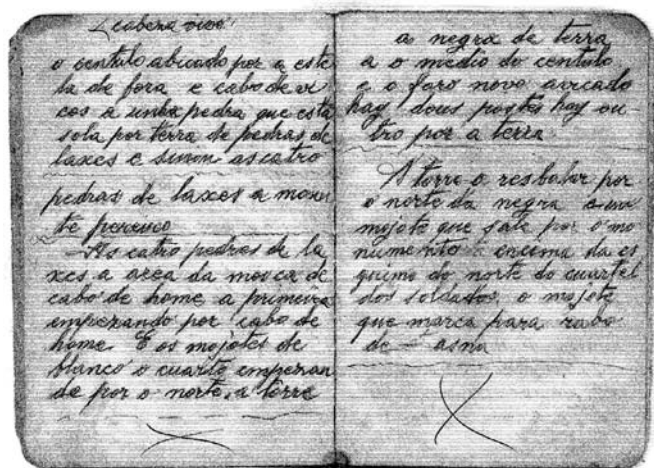 cabena vivo
o centulo abicado por a este
la de fora e cabo de vi
cos a unha pedra que está
sola por terra de pedras de
laxes e sinon as catro
pedras de laxes a mon
te pereiro
As catro pedras de la
xes a area da mosca de
cabo de home a primeira
empezando por cabo de
home. E os mojotes de
blanco o cuarto empezan
do por o norte, a torre
a negra de terra
a o medio do centulo
e o faro novo aricado
hay dous postes hay ou-
tro por a terra
A torre o resbalar por
o norte da negra
mojote que sale por o mo
numento e encima da es
quina do norte do cuartel
dos soldados, o mojote
que marca para rabo
de asna